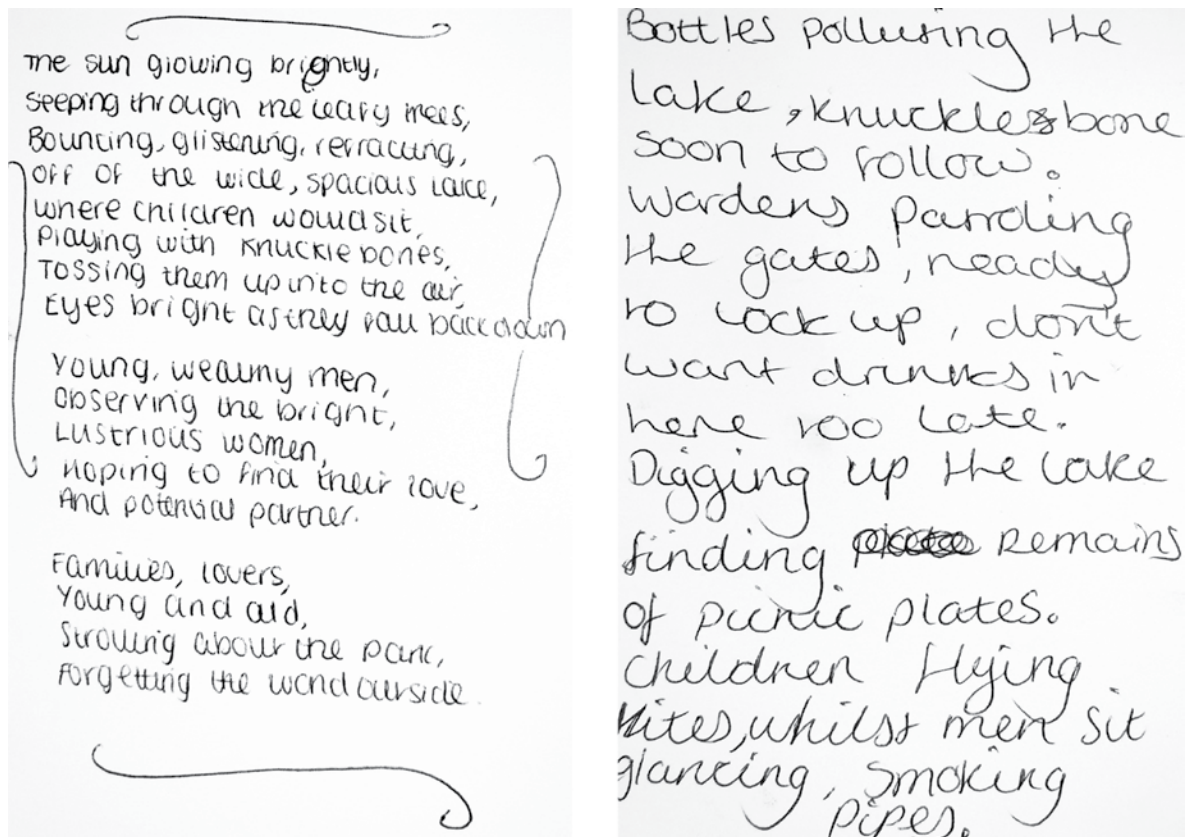 The sun glowing brightly,
Seeping through the leafy trees,
Bouncing, glistening, refracting,
Off of the wide, spacious lake,
where children would sit,
Playing with knuckle bones,
Tossing them up into the air,
Eyes bright as they fall back down
Young, wealthy men,
Observing the bright,
Lustrious women,
Hoping to find their love,
And potential partner.
Families, lovers,
Young and old,
Strolling about the park,
Forgetting the world outside.
Bottles polluting the
lake, knuckle bone
soon to follow.
Wardens patroling
the gates, ready
to lock up, don't
want drunks in
here too late.
Digging up the lake
finding remains
of picnic plates.
Children flying
kites, whilst men sit
glancing, smoking
pipes.